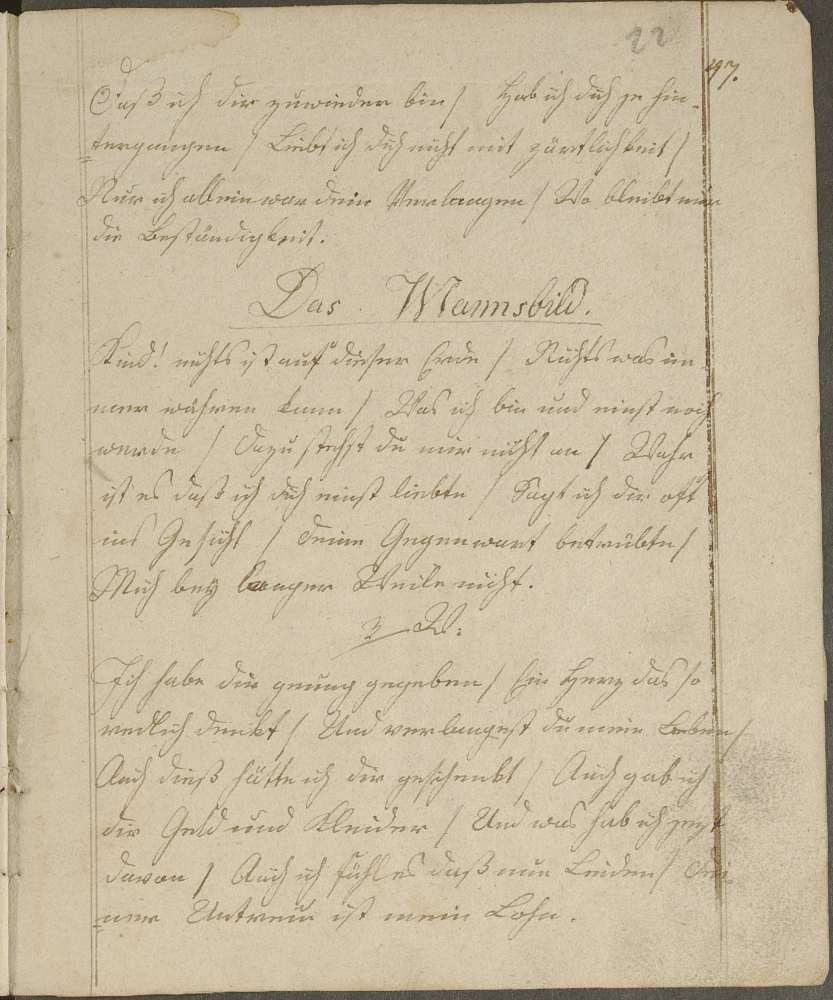 22
47.
Daß ich dir zuwieder bin / Hab ich dich je hin-
tergangen / Liebt ich dich nicht mit zärtlichkeit /
Nur ich allein war dein Verlangen / Wo bleibt nun
die Beständigkeit.
Das Mannsbild.
Kind! nichts ist auf dieser Erde / Nichts was im-
mer währen kann / Was ich bin und einst noch
werde / dazu stehst du mir nicht an / Wahr
ist es daß ich dich einst liebte / Sagt ich dir oft
ins Gesicht / deine Gegenwart betrübte /
Mich bey langer Weile nicht.
3 W:
Ich habe dir genung gegeben / Ein Herz das so
redlich denkt / Und verlangest du mein Leben /
Auch dieß hätte ich dir geschenkt / Auch gab ich
dir Geld und Kleider / Und was hab ich jezt
davon / Auch ich fühl es daß nun Leiden / dei-
ner Untreue ist mein Lohn.